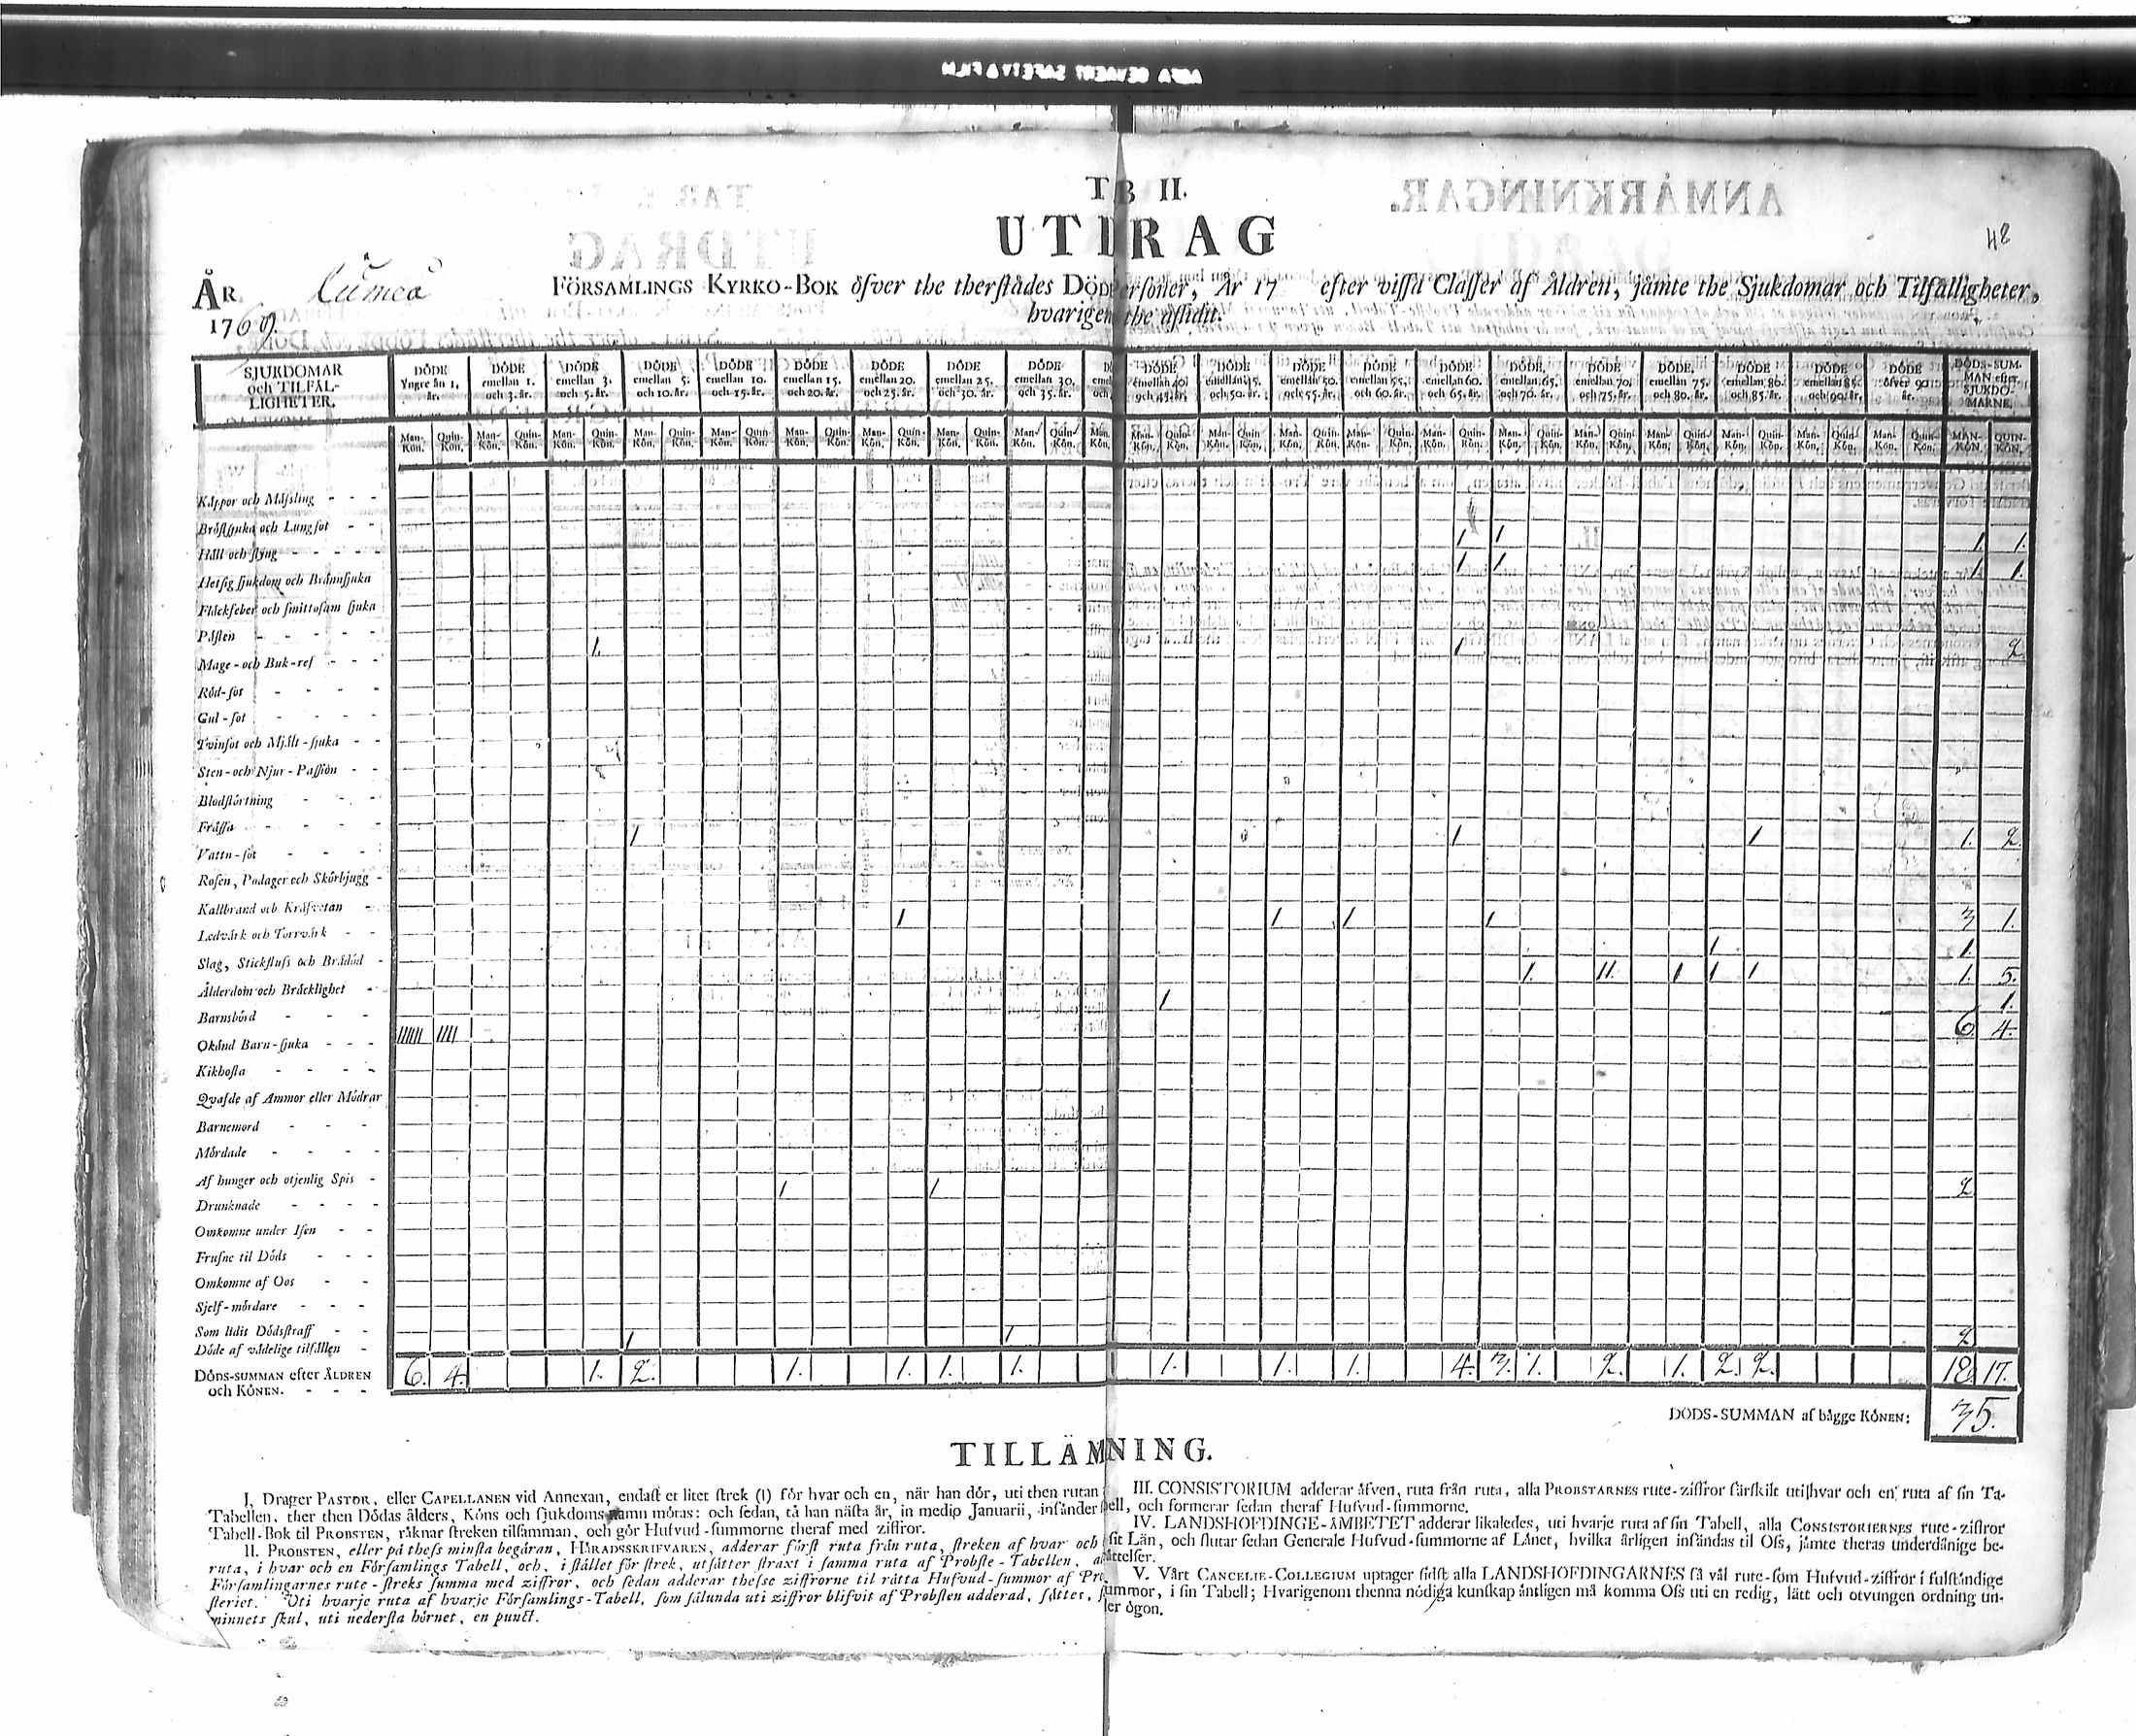 TAB II.
UTDRAG
48
ÅR Lümeå FÖRSAMLINGS KYRKO-BOK öfver the therstädes DÖDE Personer, År 17 efter vissa Classer af Åldren, jämte the Sjukdomar och Tilfälligheter,
1769. hvarigen the aflidit.
SJUKDOMAR och TILFÄLLIGHETER.
DÖDE Yngre än 1. år. DÖDE emellan 1. och 3. år. DÖDE emellan 3. och 5. år. DÖDE emellan 5. och 10. år. DÖDE emellan 10. och 15. år. DÖDE emellan 15. och 20. år. DÖDE emellan 20. och 25. år. DÖDE emellan 25. och 30. år. DÖDE emellan 30. och 35. år. DÖDE emellan 40. och 45. år. DÖDE emellan 45. och 50. år. DÖDE emellan 50. och 55. år. DÖDE emellan 55. och 60. år. DÖDE emellan 60. och 65. år. DÖDE emellan 65. och 70. år. DÖDE emellan 70. och 75. år. DÖDE emellan 75. och 80. år. DÖDE emellan 80. och 85. år. DÖDE emellan 85. och 90. år. DÖDE öfver 90 år. DÖDS-SUMMAN efter SJUKDOMARNE.
Man-Kön. Quin-Kön. Man-Kön. Quin-Kön. Man-Kön. Quin-Kön. Man-Kön. Quin-Kön. Man-Kön. Quin-Kön. Man-Kön. Quin-Kön. Man-Kön. Quin-Kön. Man-Kön. Quin-Kön. Man-Kön. Quin-Kön. Man-Kön. Man-Kön. Quin-Kön. Man-Kön. Quin-Kön. Man-Kön. Quin-Kön. Man-Kön. Quin-Kön. Man-Kön. Quin-Kön. Man-Kön. Quin-Kön. Man-Kön. Quin-Kön. Man-Kön. Quin-Kön. Man-Kön. Quin-Kön. Man-Kön. Quin-Kön. Man-Kön. Quin-Kön. MAN-KÖN. QUIN-KÖN.
Kåppor och Mässling
Bröstsjuka och Lungsot
Håll och styng 1 1 1. 1.
Hetsig sjukdom och Brännsjuka 1 1 1. 1.
Fläckfeber och smittosam sjuka
Påsten
Mage- och Buk-ref 1. 1 2
Röd-sot
Gul-sot
Tvinsot och Mjält-sjuka
Sten- och Njur-Passion
Blodstörtning
Frässa
Vattu-sot 1 1 1 1. 2.
Rosen, Podager och Skörbjugg
Kallbrand och Kräfvetan
Ledvärk och Torrvärk 1 1 1 1 3 1.
Slag, Stickfluss och Brådöd 1 1.
Ålderdom och Bräcklighet 1. 11. 1 1 1 1. 5.
Barnsbörd 1 1.
Okänd Barn-sjuka 111111 1111 6. 4.
Kikhosta
Qvafde af Ammor eller Mödrar
Barnemord
Mördade
Af hunger och otjenlig Spis
Drunknade 1 1 2
Omkomne under Isen
Frusne til Döds
Omkomne af Oos
Sjelf-mördare
Som lidit Dödsstraff
Döde af vådelige tilfällen 1 1 2
DÖDS-SUMMAN efter ÅLDREN och KÖNEN. 6. 4. 1. 2. 1. 1. 1. 1. 1. 1. 1. 4. 3. 1. 2. 1. 2. 2. 18. 17.
DÖDS-SUMMAN af bägge KÖNEN: 35.
TILLÄMNING.
I. Drager PASTOR, eller CAPELLANEN vid Annexan, endast et litet strek (1) för hvar och en, när han dör, uti then rutan
Tabellen, ther then Dödas ålders, Köns och sjukdoms namn möras: och sedan, tå han nästa år, in medio Januarii, insänder
Tabell-Bok til PROBSTEN, räknar streken tillsamman, och gör Hufvud-summorne theraf med ziffror.
II. PROBSTEN, eller på thess minsta begäran, HÄRADSSKRIFVAREN, adderar först ruta från ruta, streken af hvar och
ruta, i hvar och en Församlings Tabell, och, i stället för strek, utsätter straxt i samma ruta af Probste-Tabellen,
Församlingarnes rute-streks summa med ziffror, och sedan adderar thesse ziffrorne til rätta Hufvud-summor af
steriet. Uti hvarje ruta af hvarje Församlings-Tabell, som sålunda uti ziffror blifvit af Probsten adderad, sättes,
minnets skul, uti nedersta hörnet, en punct.
III. CONSISTORIUM adderar äfven, ruta från ruta, alla PROBSTARNES rute-ziffror särskilt uti hvar och en ruta af sin Ta-
bell, och formerar sedan theraf Hufvud-summorne.
IV. LANDSHÖFDINGE-ÄMBETET adderar likaledes, uti hvarje ruta af sin Tabell, alla CONSISTORIERNES rute-ziffror
sit Län, och slutar sedan Generale Hufvud-summorne af Länet, hvilka årligen insändas til Oss, jämte theras underdånige be-
rättelser.
V. Vårt CANCELIE-COLLEGIUM uptager sidst alla LANDSHÖFDINGARNES så väl rute-som Hufvud-ziffror i fulständige
summor, i sin Tabell; Hvarigenom thenna nödiga kunskap äntligen må komma Oss uti en redig, lätt och otvungen ordning un-
der ögon.